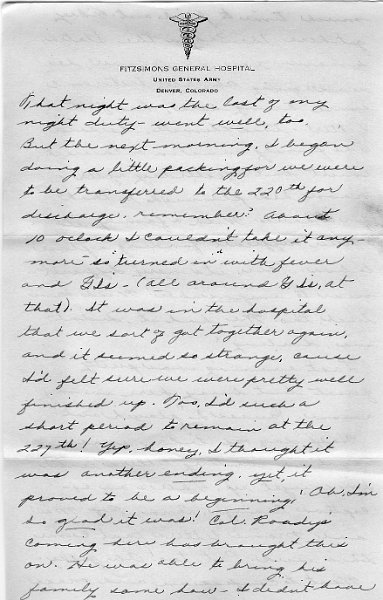 FITZSIMONS GENERAL HOSPITAL
UNITED STATES ARMY
DENVER, COLORADO
That night was the last of my
night duty - went well, too.
But the next morning, I began
doing a little packing for we were
to be transferred to the 220th for
discharge, remember? About
10 oclock I couldn't take it any-
more - so "turned in" with fever
and GIs - (all around GIs, at
that). It was in the hospital
that we sort of got together again,
and it seemed so strange, cause
I'd felt sure we were pretty well
finished up. Too, I'd such a
short period to remain at the
227th! Yep, honey, I thought it
was another ending, yet, it
proved to be a beginning! Oh, I'm
so glad it was! Col. Roady's
coming here has brought this
on. He was able to bring his
family some how - I didn't have